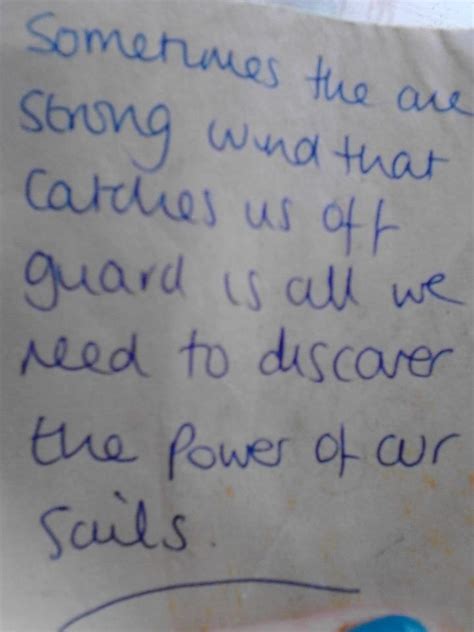 Sometimes the one
strong wind that
catches us off
guard is all we
need to discover
the power of our
sails.